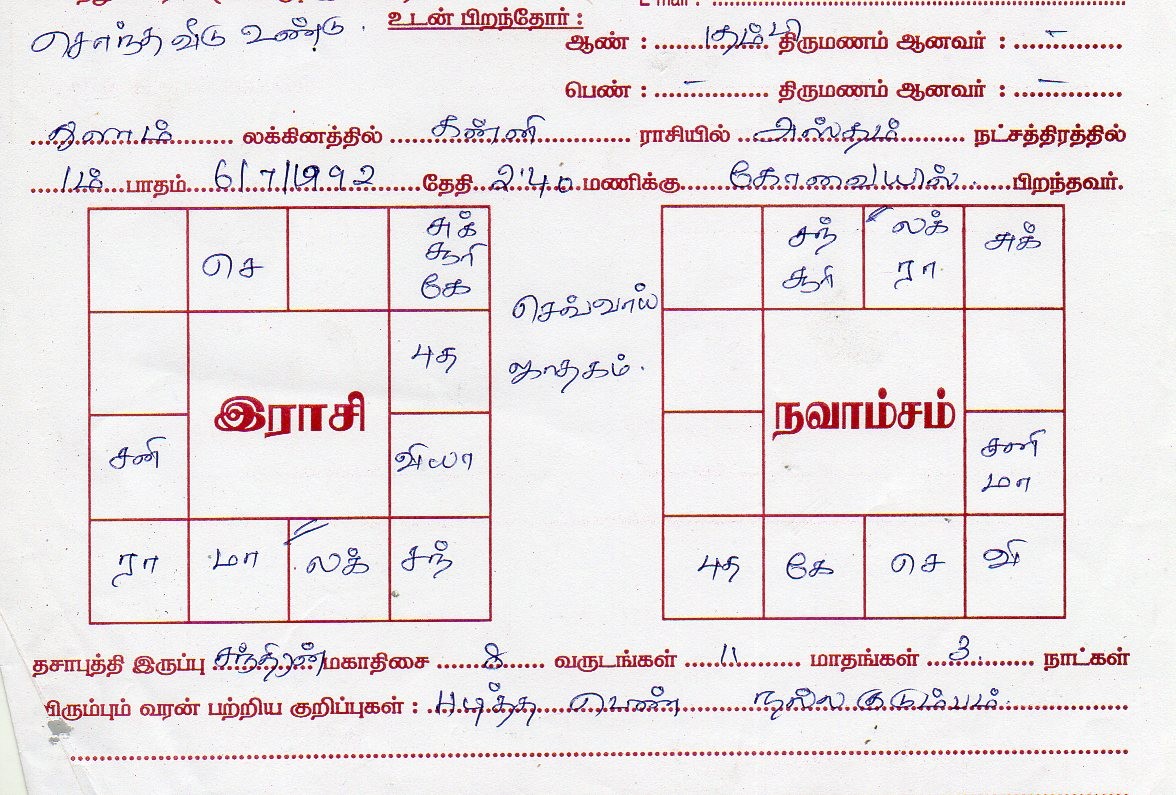 சொந்த வீடு உண்டு.
உடன் பிறந்தோர் :
ஆண் : ............ தம்பி திருமணம் ஆனவர் : ..... - .....
பெண் : ..... - ..... திருமணம் ஆனவர் : ..... - .....
துலாம் லக்கினத்தில் கன்னி ராசியில் அஸ்தம் நட்சத்திரத்தில்
1ம் பாதம் 6/7/1992 தேதி 2.40 மணிக்கு கோவையில் பிறந்தவர்.
செ
சுக்
சூரி
கே
புத
வியா
சந்
லக்
மா
ரா
சனி
இராசி
செவ்வாய்
ஜாதகம்.
சந்
சூரி
லக்
ரா
சுக்
சனி
மா
வி
செ
கே
புத
நவாம்சம்
தசாபுத்தி இருப்பு சந்திரன் மகாதிசை 8 வருடங்கள் 11 மாதங்கள் 3 நாட்கள்
விரும்பும் வரன் பற்றிய குறிப்புகள் : படித்த பெண் நல்ல குடும்பம்.